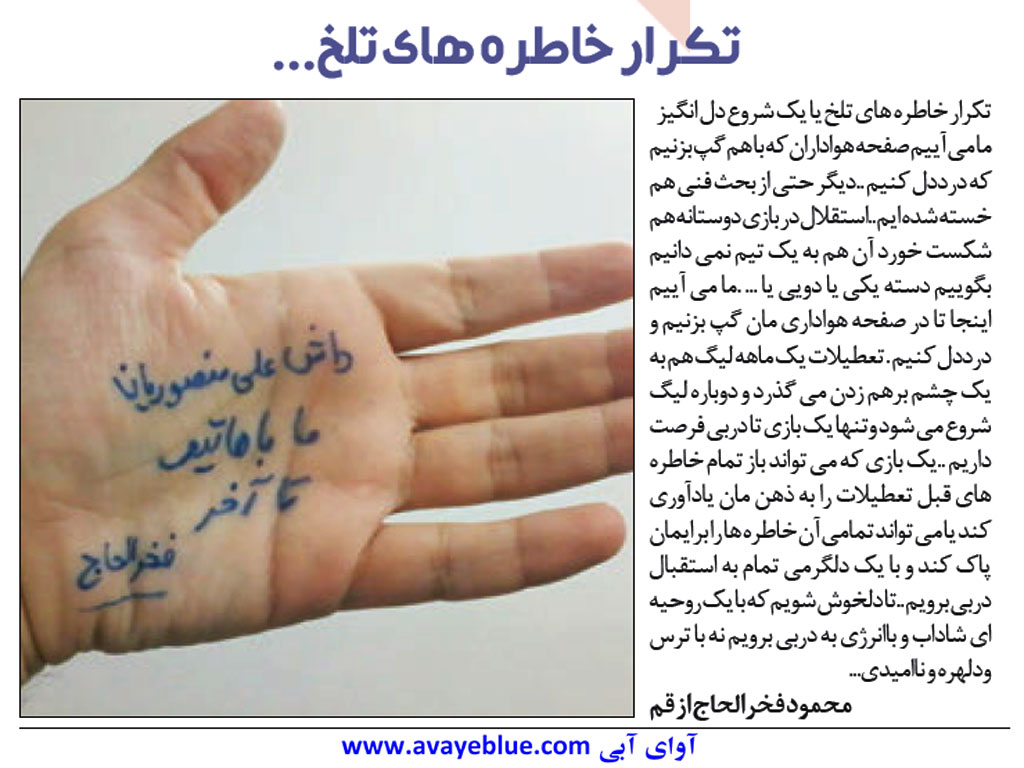 تکرار خاطره های تلخ...
تکرار خاطره های تلخ یا یک شروع دل انگیز
ما می آییم صفحه هواداران که باهم گپ بزنیم
که درددل کنیم..دیگر حتی از بحث فنی هم
خسته شده ایم..استقلال در بازی دوستانه هم
شکست خورد آن هم به یک تیم نمی دانیم
بگوییم دسته یکی یا دویی یا ....ما می آییم
اینجا تا در صفحه هواداری مان گپ بزنیم و
درددل کنیم. تعطیلات یک ماهه لیگ هم به
یک چشم برهم زدن می گذرد و دوباره لیگ
شروع می شود و تنها یک بازی تا دربی فرصت
داریم ..یک بازی که می تواند باز تمام خاطره
های قبل تعطیلات را به ذهن مان یادآوری
کند یا می تواند تمامی آن خاطره ها را برایمان
پاک کند و با یک دلگرمی تمام به استقبال
دربی برویم..تا دلخوش شویم که با یک روحیه
ای شاداب و باانرژی به دربی برویم نه با ترس
و دلهره و ناامیدی...
محمود فخرالحاج از قم
داش علی منصوریان
ما باهاتیم
تا آخر
فخرالحاج
آوای آبی www.avayeblue.com